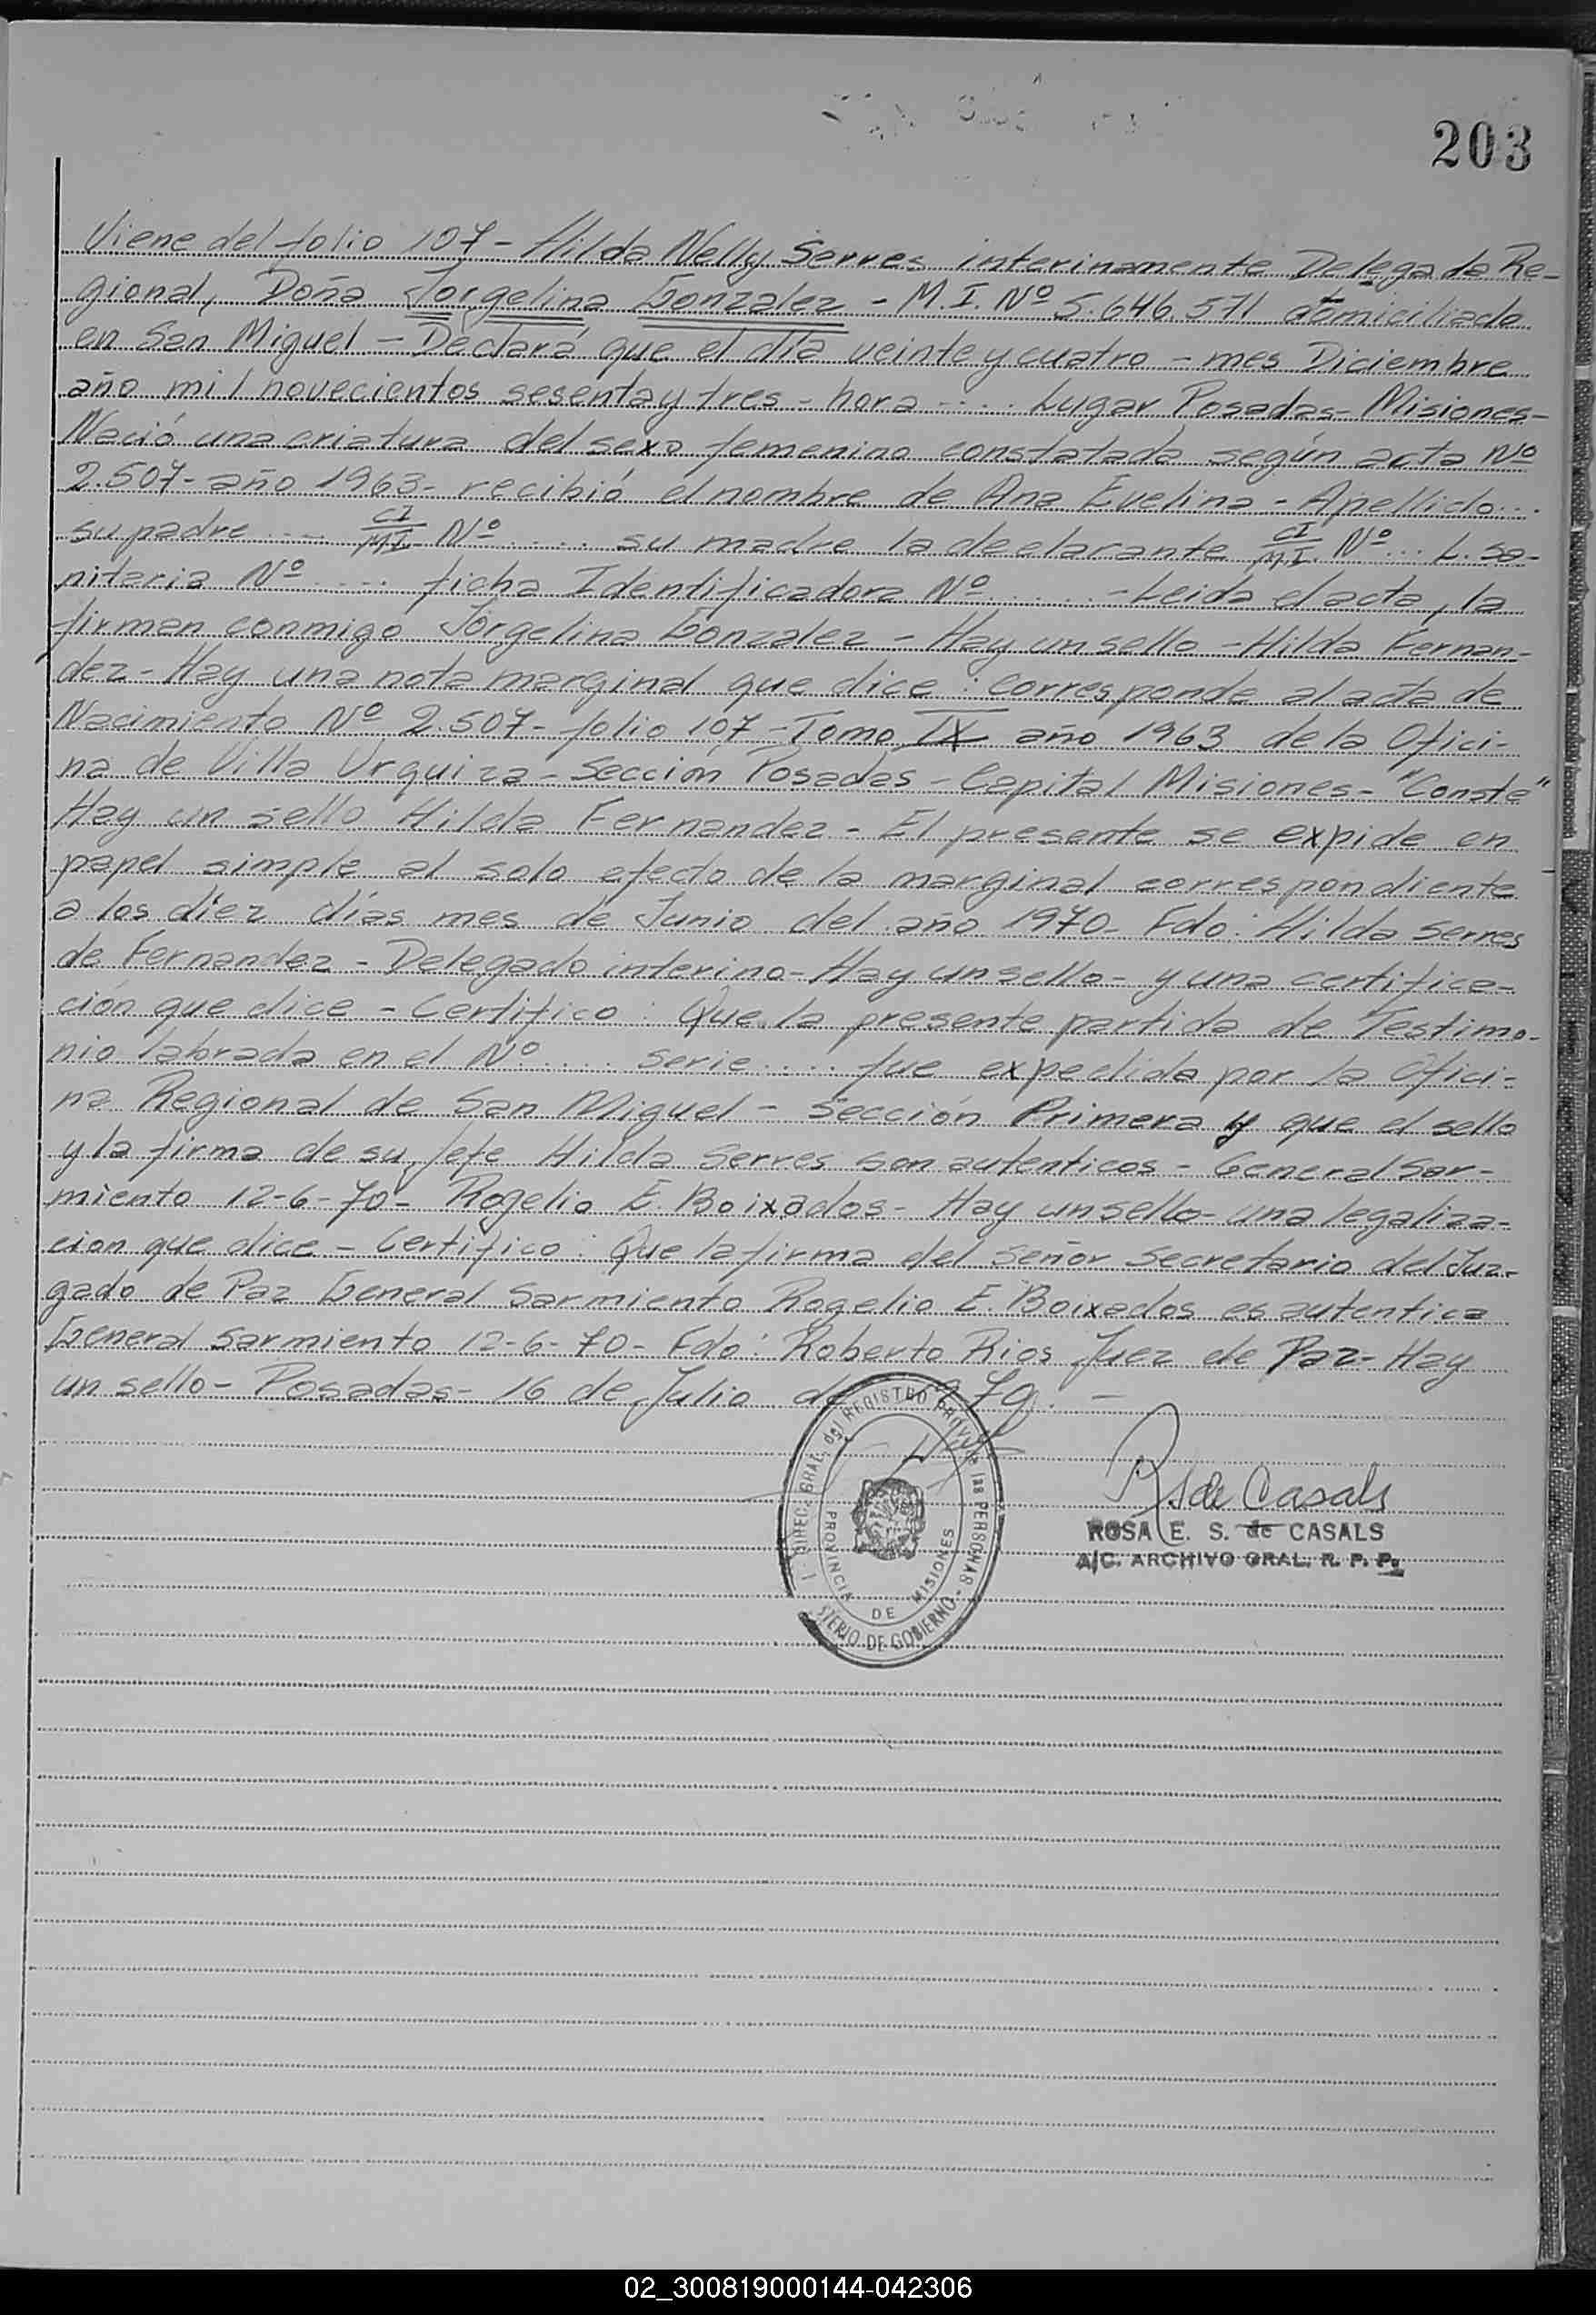 203
Viene del folio 107 - Hilda Nelly Serres interinamente Delegada Re-
gional, Doña Jorgelina Gonzalez - M.I. Nº 5.646.571 domiciliada
en San Miguel - Declara que el día veinte y cuatro - mes Diciembre
año mil novecientos sesenta y tres - hora .... Lugar Posadas - Misiones -
Nació una criatura del sexo femenino constatada según acta Nº
2.507 - año 1963 - recibió el nombre de Ana Evelina - Apellido ...
su padre .... CI/M.I. Nº .... su madre la declarante CI/M.I. Nº ... L. Sa-
nitaria Nº .... ficha Identificadora Nº ..... - Leida el acta, la
firman conmigo Jorgelina Gonzalez - Hay un sello - Hilda Fernan-
dez - Hay una nota marginal que dice : Corresponde al acta de
Nacimiento Nº 2.507 - folio 107 - Tomo IX año 1963 de la Ofici-
na de Villa Urquiza - Sección Posadas - Capital Misiones - "Conste"
Hay un sello Hilda Fernandez - El presente se expide en
papel simple al solo efecto de la marginal correspondiente
a los diez días mes de Junio del año 1970 - Fdo: Hilda Serres
de Fernandez - Delegado interino - Hay un sello - y una certifica-
ción que dice - Certifico : Que la presente partida de Testimo-
nio labrada en el Nº .... serie .... fue expedida por la Ofici-
na Regional de San Miguel - Sección Primera y que el sello
y la firma de su Jefe Hilda Serres son autenticos - General Sar-
miento 12-6-70 - Rogelio E. Boixados - Hay un sello - una legaliza-
cion que dice - Certifico : Que la firma del Señor Secretario del Juz-
gado de Paz General Sarmiento Rogelio E. Boixados es autentica
General Sarmiento 12-6-70 - Fdo: Roberto Rios Juez de Paz - Hay
un sello - Posadas - 16 de Julio de 1979. -
DIREC. GRAL. del REGISTRO PROV. de las PERSONAS
PROVINCIA DE MISIONES
STERIO DE GOBIERNO
R S de Casals
ROSA E. S. de CASALS
A/C. ARCHIVO GRAL. R. P. P.
02_300819000144-042306